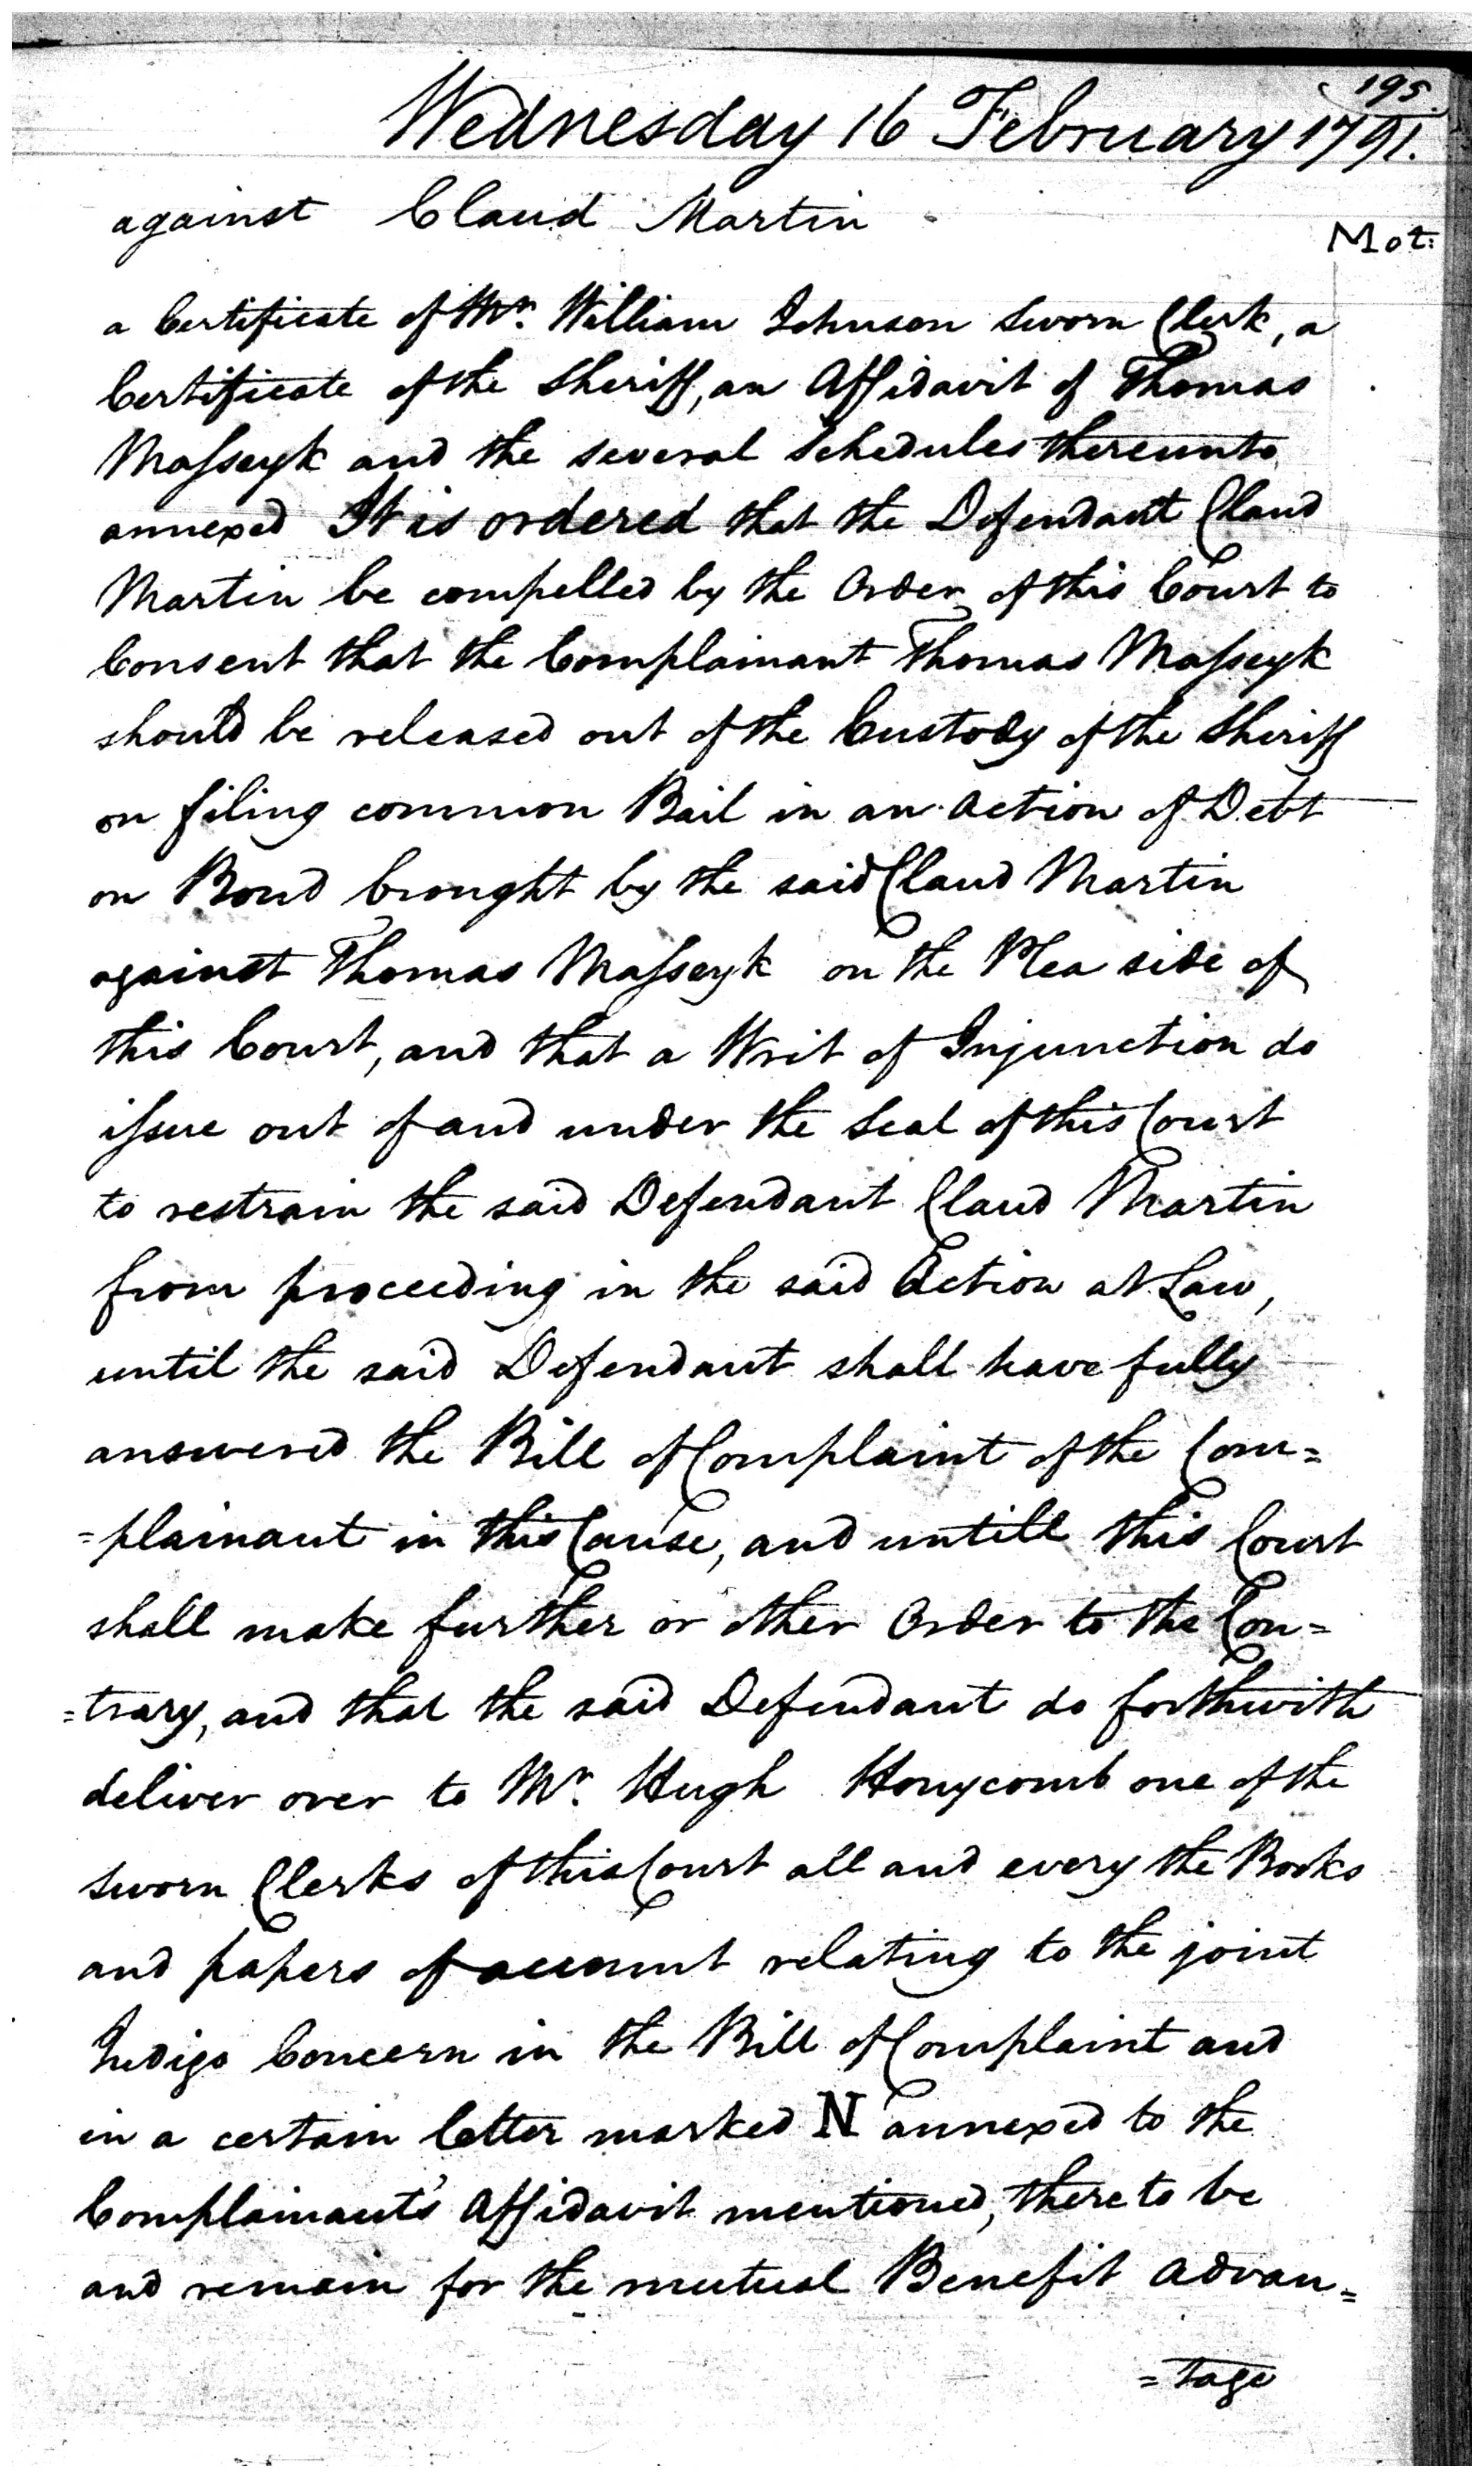 195.
Wednesday 16 February 1791.
against Claud Martin
Mot:
a Certificate of Mr. William Johnson Sworn Clerk, a
Certificate of the Sheriff, an Affidavit of Thomas
Maſseyk and the several Schedules thereunto
annexed It is ordered that the Defendant Claud
Martin be compelled by the Order of this Court to
Consent that the Complainant Thomas Maſseyk
should be released out of the Custody of the Sheriff
on filing common Bail in an Action of Debt
on Bond brought by the said Claud Martin
against Thomas Maſseyk on the Plea side of
this Court, and that a Writ of Injunction do
iſsue out of and under the Seal of this Court
to restrain the said Defendant Claud Martin
from proceeding in the said Action at Law,
until the said Defendant shall have fully
answered the Bill of Complaint of the Com=
=plainant in this Cause, and untill this Court
shall make further or other Order to the Con=
=trary, and that the said Defendant do forthwith
deliver over to Mr. Hugh Honycomb one of the
Sworn Clerks of this Court all and every the Books
and papers of account relating to the joint
Indigo Concern in the Bill of Complaint and
in a certain letter marked N annexed to the
Complainant's Affidavit mentioned, there to be
and remain for the mutual Benefit Advan=
=tage